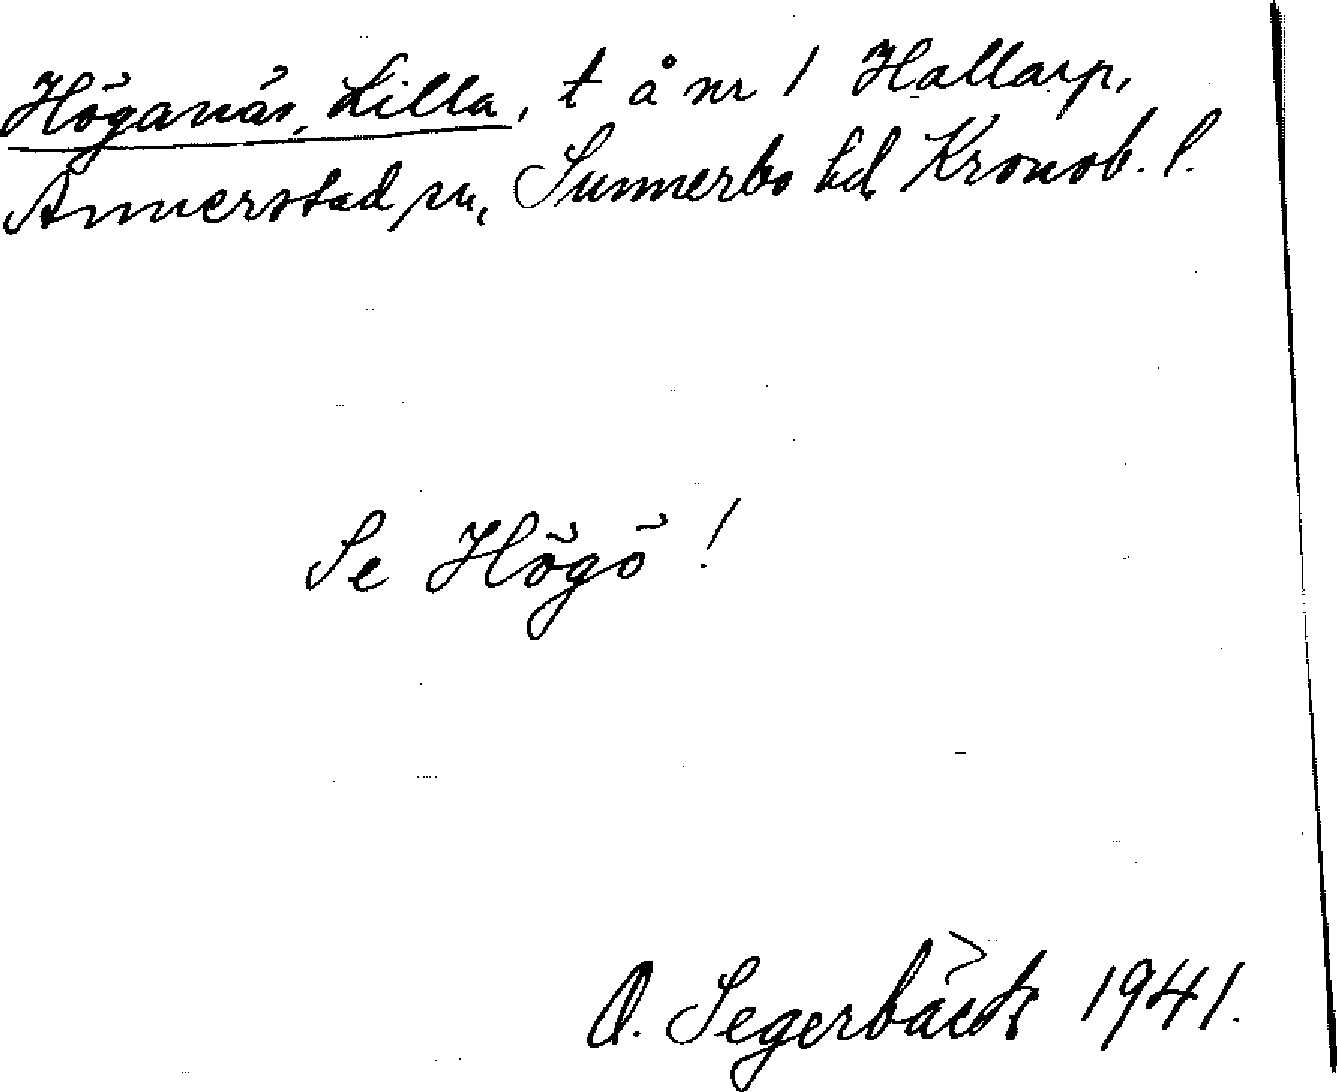 Höganäs, Lilla, t å nr 1 Hallarp,
Annerstad sn, Sunnerbo hd, Kronob. l.
Se Högö!
O. Segerbäck 1941.